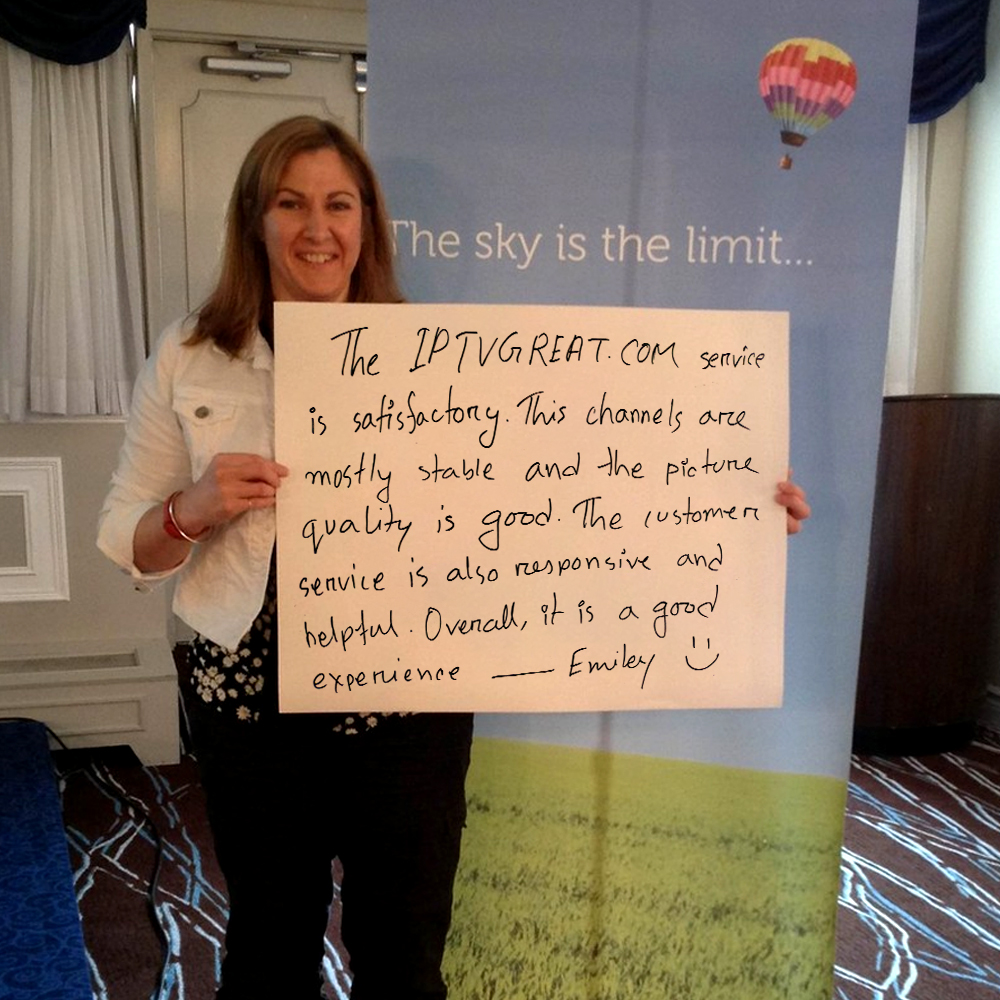 The sky is the limit...
The IPTVGREAT.COM service
is satisfactory. This channels are
mostly stable and the picture
quality is good. The customer
service is also responsive and
helpful. Overall, it is a good
experience — Emiley